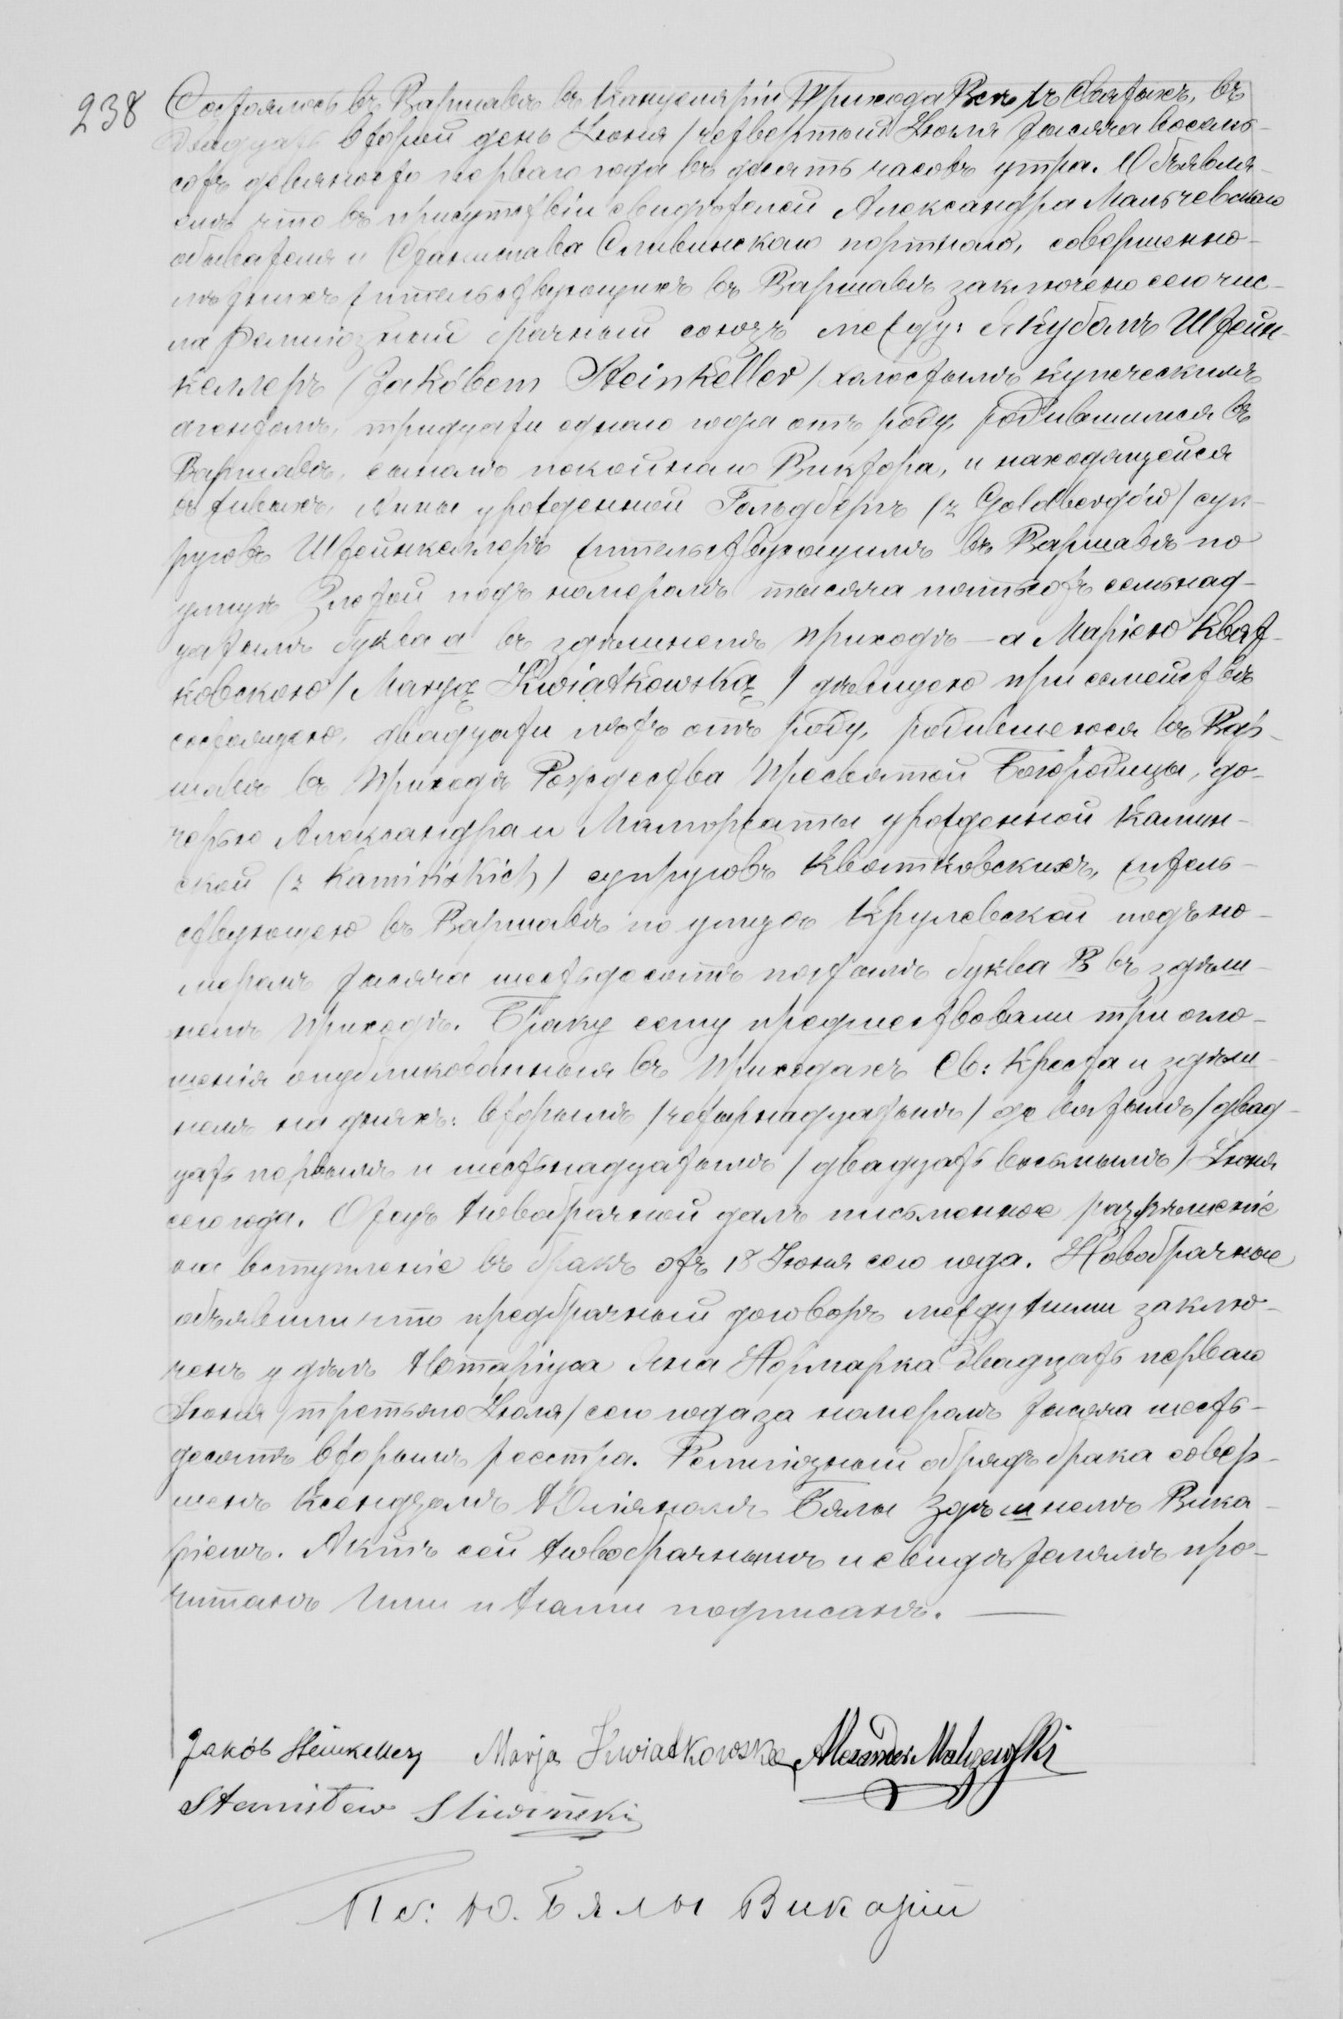 238
Состоялось въ Варшавѣ въ Канцеляріи Прихода Всѣхъ Святыхъ, въ
двадцать второй день Іюня / четвертый Іюля тысяча восемь-
сотъ девяносто перваго года въ десять часовъ утра. Объявля-
емъ что въ присутствіи свидѣтелей Александра Мальчевскаго
обывателя и Станислава Сливинскаго портнаго, совершенно-
лѣтнихъ жительствующихъ въ Варшавѣ заключено сего чис-
ла религіозный брачный союзъ между: Якубомъ Штейн-
келлеръ / Jakóbem Steinkeller / холостымъ купеческимъ
агентомъ, тридцати одного года отъ роду, родившимся въ
Варшавѣ, сыномъ покойнаго Виктора, и находящейся
въ живыхъ, Анны урожденной Гольдбергъ (z Goldbergów) суп-
руговъ Штейнкеллеръ жительствующимъ въ Варшавѣ по
улицѣ Злотой подъ номеромъ тысяча пятьсотъ семьнад-
цатымъ буква а въ здѣшнемъ приходѣ — а Маріею Кват-
ковскою / Maryą Kwiatkowską / дѣвицею при семействѣ
состоящею, двадцати лѣтъ отъ роду, родившеюся въ Вар-
шавѣ въ приходѣ Рождества Пресвятой Богородицы, до-
черью Александра и Малгоржаты урожденной Камин-
ской (z Kamińskich) супруговъ Квятковскихъ, житель-
ствующею въ Варшавѣ по улицѣ Крулевской подъ но-
меромъ тысяча шестьдесятъ пятымъ буква В въ здѣш-
немъ приходѣ. Браку сему предшествовали три огло-
шенія опубликованныя въ Приходахъ Св: Креста и здѣш-
немъ на дняхъ: вторымъ / четырнадцатымъ / девятымъ / двад-
цать первымъ и шестьнадцатымъ / двадцать восьмымъ / Іюня
сего года. Отецъ новобрачной далъ письменное разрѣшеніе
на вступленіе въ бракъ отъ 18 Іюня сего года. Новобрачные
объявили что предбрачный договоръ между ними заклю-
ченъ у дѣлъ Нотаріуса Яна Нормарка двадцать перваго
Іюня / третьяго Іюля / сего года за номеромъ тысяча шесть-
десятъ вторымъ реестра. Религіозный обрядъ брака совер-
шенъ Ксендзомъ Юліяномъ Бялы здѣшнемъ Вика-
ріемъ. Актъ сей новобрачнымъ и свидѣтелямъ про-
читанъ Ими и нами подписанъ. —
Jakób Steinkeller Marja Kwiatkowska Alexander Malczewski
Stanisław Sliwiński
Кс: Ю. Бялы Викарій